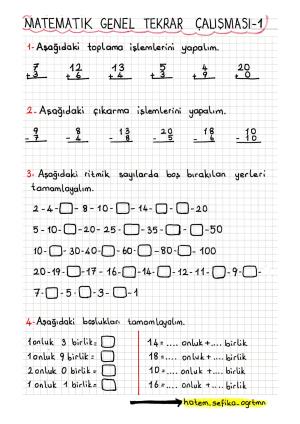 MATEMATİK GENEL TEKRAR ÇALIŞMASI-1
1- Aşağıdaki toplama işlemlerini yapalım.
7 12 13 5 4 20
+3 +6 +4 +3 +9 +0
2- Aşağıdaki çıkarma işlemlerini yapalım.
9 8 13 20 18 10
-7 -4 -8 -5 -6 -10
3- Aşağıdaki ritmik sayılarda boş bırakılan yerleri
tamamlayalım.
2-4-□-8-10-□-14-□-□-20
5-10-□-20-25-□-35-□-□-50
10-□-30-40-□-60-□-80-□-100
20-19-□-17-16-□-14-□-12-11-□-9-□-
7-□-5-□-3-□-1
4- Aşağıdaki boşlukları tamamlayalım.
1 onluk 3 birlik= □
1 onluk 9 birlik= □
2 onluk 0 birlik= □
1 onluk 1 birlik= □
14= .... onluk + ... birlik
18= .... onluk + ... birlik
10= .... onluk + ... birlik
16= .... onluk + ... birlik
hatem_sefika_ogrtmn